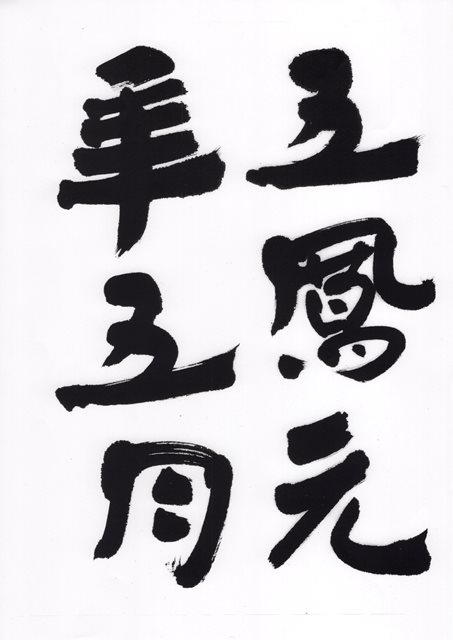 五鳳元
年五月